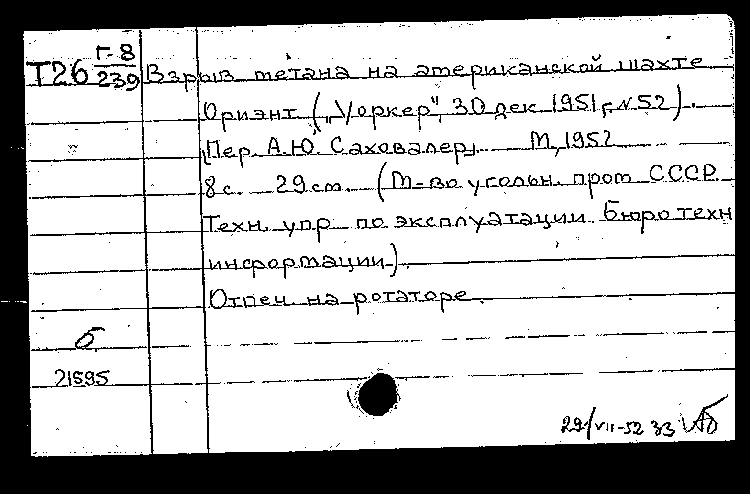 Т26 Г-8/239 Взрыв метана на американской шахте
Ориэнт („Уоркер", 30 дек 1951г. N 52).
Пер. А.Ю. Саховалер, М, 1952
8 с. 29 см. (М-во угольн. пром СССР.
Техн. упр по эксплуатации Бюро техн
информации).
Отпеч. на ротаторе.
б
21595
29/VII-52 33